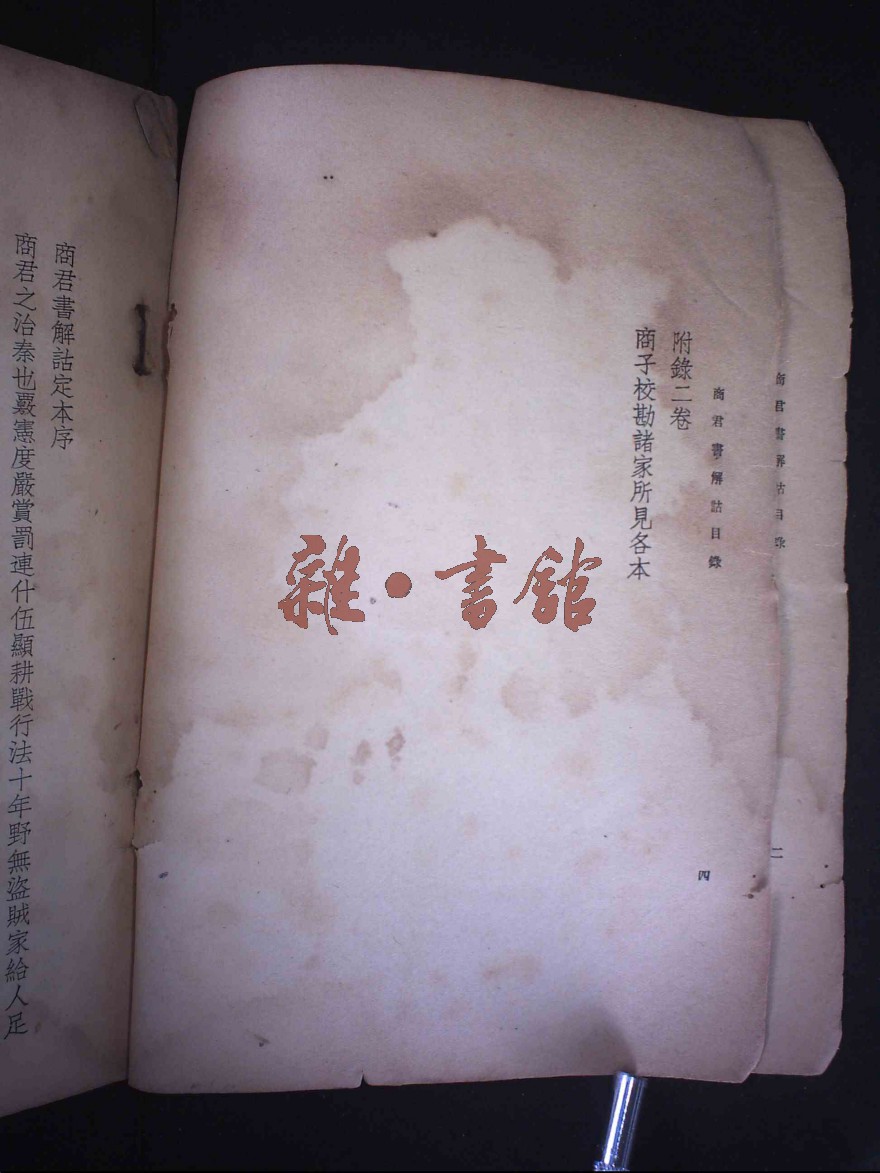 商君書解詁目錄
二
商君書解詁目錄
四
附錄二卷
商子校勘諸家所見各本
雜·書館
商君書解詁定本序
商君之治秦也覈憲度嚴賞罰連什伍顯耕戰行法十年野無盜賊家給人足